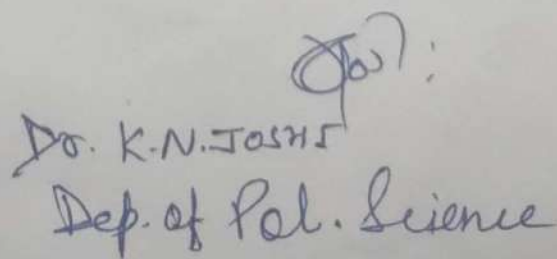 Dr. K.N. JOSHI
Dep. of Pol. Science